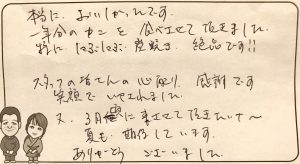 本当に おいしかったです。
一年分のカニを 食べさせて頂きました。
特に しゃぶしゃぶ・炭焼き 絶品です!!
スタッフの皆さんの心配り、感謝です
笑顔で いやされました。
又、3月に来させて頂きたいナ〜
夏も 期待しています。
ありがとう ございました。